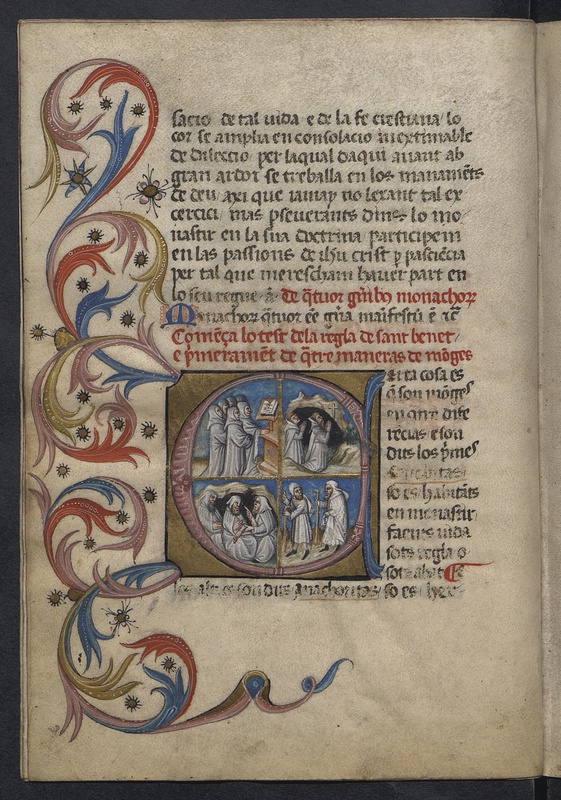 sacio de tal uida e de la fe crestiana lo
cor se amplia en consolacio inextimable
de dileccio per laqual daqui auant ab
gran ardor se treballa en los manamẽts
de deu axi que iamay no lexant tal ex
cercici mas pseuerants dins lo mo
nastir en la sua doctrina participem
en las passions de ihũ crist p paciẽcia
per tal que merescham hauer part en
lo seu regne de qͣtuor gñibꝫ monachoꝝ
Monachoꝝ qͣtuor ẽe gña
Comẽça lo test dela regla de sant benet
e pͥmeramẽt de qͣtre maneras de mõges
Certa cosa es
q̃ son mõges
en qͣtre dife
rẽcias e son
dits los pͥmeͬs
so es habitãts
en monastir
faents uida
sots regla o
sots abat
los altres son dits anachoritas so es